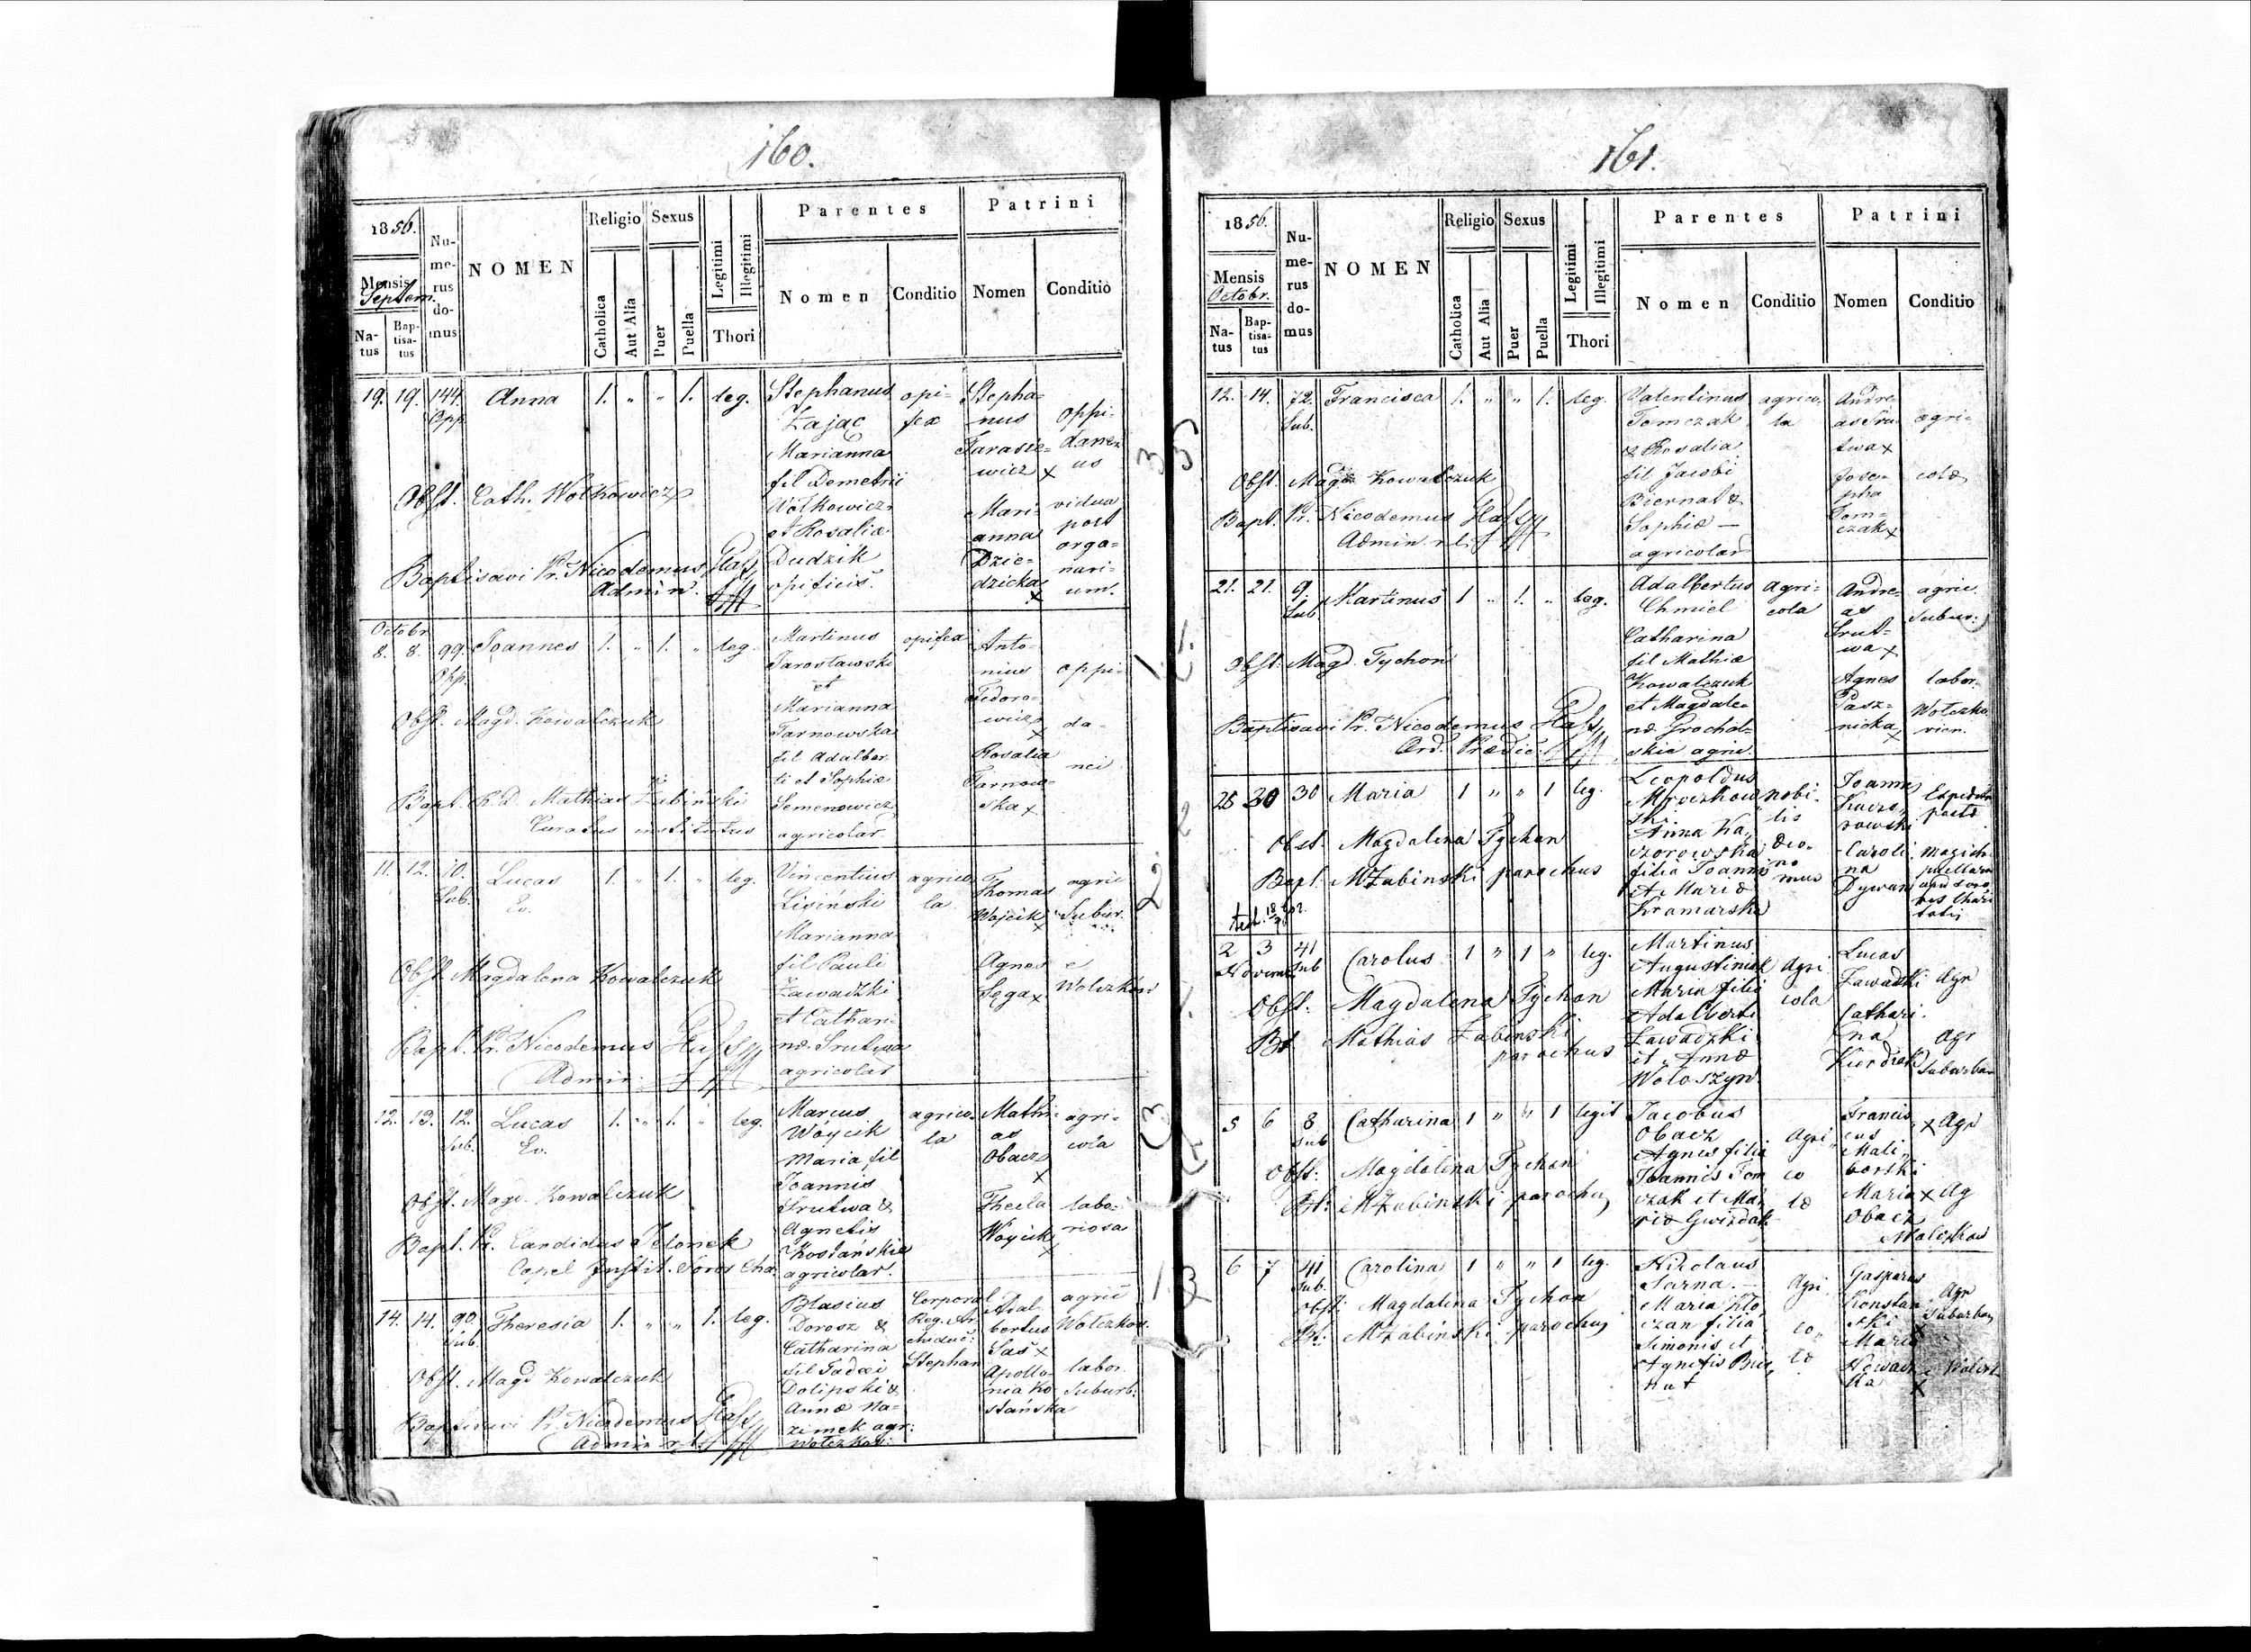 160.
1856.
Mensis
Septem.
Na-
tus
Bap-
tisa-
tus
Nu-
me-
rus
do-
mus
NOMEN
Religio
Catholica
Aut Alia
Sexus
Puer
Puella
Legitimi
Illegitimi
Thori
Parentes
Nomen
Conditio
Patrini
Nomen
Conditio
19. 19. 144. Anna 1. " " 1. leg.
Opp.
Stephanus
Zając
Marianna
fil Demetrii
Wołkowicz
et Rosaliæ
Dudzik
opificis.
opi-
fex
Stepha-
nus
Tarasie-
wicz x
Mari-
anna
Dzie-
dzicka
x
oppi-
dane-
us
vidua
post
orga-
nari-
um.
Obst. Cath. Wołkowicz
Baptisavi Pr. Nicodemus
Admin.
Octobr
8. 8. 99. Joannes 1. " 1. " leg.
Opp.
Martinus
Jarosławski
et
Marianna
Tarnowska
fil Adalber
ti et Sophiæ
Semenowicz
agricolar.
opifex
Anto-
nius
Fedoro-
wicz
x
Rosalia
Tarnow-
ska x
oppi-
da-
nei
Obst. Magd. Kowalczuk
Bapt. R. D. Mathias Żabiński
Curatus institutus
11. 12. 10. Lucas 1. " 1. " leg.
Sub. Ev.
Vincentius
Lisiński
Marianna
fil Pauli
Zawadzki
et Cathari-
næ Srutwa
agricolar
agrico-
la
Thomas
Wojcik
Agnes
Sęga x
agric
Subur.
Obst Magdalena Kowalczuk
Bapt. Pr. Nicodemus
Admin.
12. 13. 12. Lucas 1. " 1. " leg.
Sub. Ev.
Marcus
Wóycik
Maria fil
Joannis
Srutwa &
Agnetis
agricolar.
agrico-
la
Mathi-
as
Obacz
x
Thecla
Woycik
x
agri-
cola
labo-
riosa
Obst. Magd. Kowalczuk
Bapt. Pr. Candidus
Capel Instit. Soror Cha.
14. 14. 90. Theresia 1. " " 1. leg.
Sub.
Blasius
Dorosz &
Catharina
fil Tadæi
Dolipski &
Annæ Na-
zimek agr:
Corporal
Reg. Ar-
chiduc:
Stephan
Adal-
bertus
Sas x
Apollo-
nia Ko-
stańska
agric
Wolczkow.
labor.
Suburb.
Obst. Magd Kowalczuk
Baptisavi Pr. Nicodemus
Admin
161.
1856.
Mensis
Octobr.
Na-
tus
Bap-
tisa-
tus
Nu-
me-
rus
do-
mus
NOMEN
Religio
Catholica
Aut Alia
Sexus
Puer
Puella
Legitimi
Illegitimi
Thori
Parentes
Nomen
Conditio
Patrini
Nomen
Conditio
12. 14. 72. Francisca 1. " " 1. leg.
Sub.
Valentinus
Tomczak
& Rosalia
fil Jacobi
Biernat &
Sophiæ —
agricolar
agrico-
la
Andre-
as Sru-
twa x
Jose-
pha
Tom-
czak x
agri-
colæ
Obst. Magd Kowalczuk
Bapt. Pr. Nicodemus
Admin
21. 21. 9. Martinus 1 " 1. " leg.
Sub
Adalbertus
Chmiel
Catharina
fil Mathiæ
Kowalczuk
et Magdale-
næ Grochol-
skie agric.
Agri-
cola
Andre-
as
Srut-
wa x
Agnes
Pasz-
nicka
x
agric.
Subur:
labor.
Wolczko
vien.
Obst. Magd. Tychon
Baptisavi Pr. Nicodemus
Ord. Prædic.
28 30 30 Maria 1 " " 1 leg.
Leopoldus
ski.
Anna Ka,
czorowska
filia Joannis
et Mariæ
Kramarska
nobi-
lis
Joannes
Kaczo-
rowski
Caroli-
na
Obst. Magdalena Tychon
Bapt. MŻabinski parochus
2 3 41 Carolus 1 " 1 " leg.
Novemb Sub
Martinus
Augustiniak
Maria filia
Adalberti
Zawadzki
et Annæ
Wołoszyn
Agri
cola
Lucas
Zawadzki
Cathari-
na
Agr
Agr
Suburban
Obst: Magdalena Tychon
Bt Mathias Żabinski
parochus
5 6 8 Catharina 1 " " 1 legit
Sub
Jacobus
Obacz
Agnes filia
Joannis Tom
czak et Ma,
riæ Gwizdak
Agri
co
la
Francis
cus
Mali-
borski
Maria
Obacz
x Agr
x Ag
Obst: Magdalena Tychon
Bt: MŻabinski parochus
6 7 41 Carolina 1 " " 1 leg.
Sub.
Nikolaus
Sarna. —
Maria Kło
czan filia
Simonis et
Agnetis Bie,
nat
Agri
co,
la
Gasparus
Konstan
ski
Maria
Nowac
ka x
Agr
Suburban
Obst: Magdalena Tychon
Bt: MŻabinski parochus